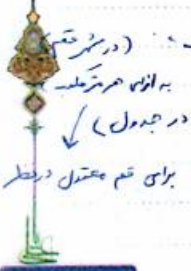 (در شهر قم
به ازای هر متر مکعب
در جدول)
برای قم معتدل در نظر